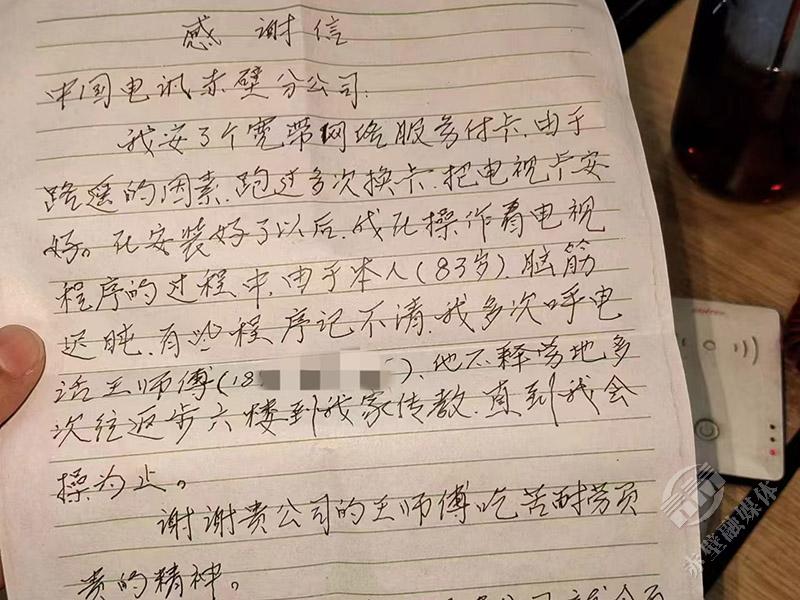 感谢信
中国电讯赤壁分公司:
我安了个宽带网络服务付卡,由于
路遥的因素,跑过多次换卡,把电视卡安
好。在安装好了以后,我在操作看电视
程序的过程中,由于本人(83岁),脑筋
迟钝,有些程序记不清,我多次呼电
话王师傅(18 ),他不辞劳地多
次往返步六楼到我家传教,直到我会
操为止。
谢谢贵公司的王师傅吃苦耐劳员
责的精神。
赤壁融媒体